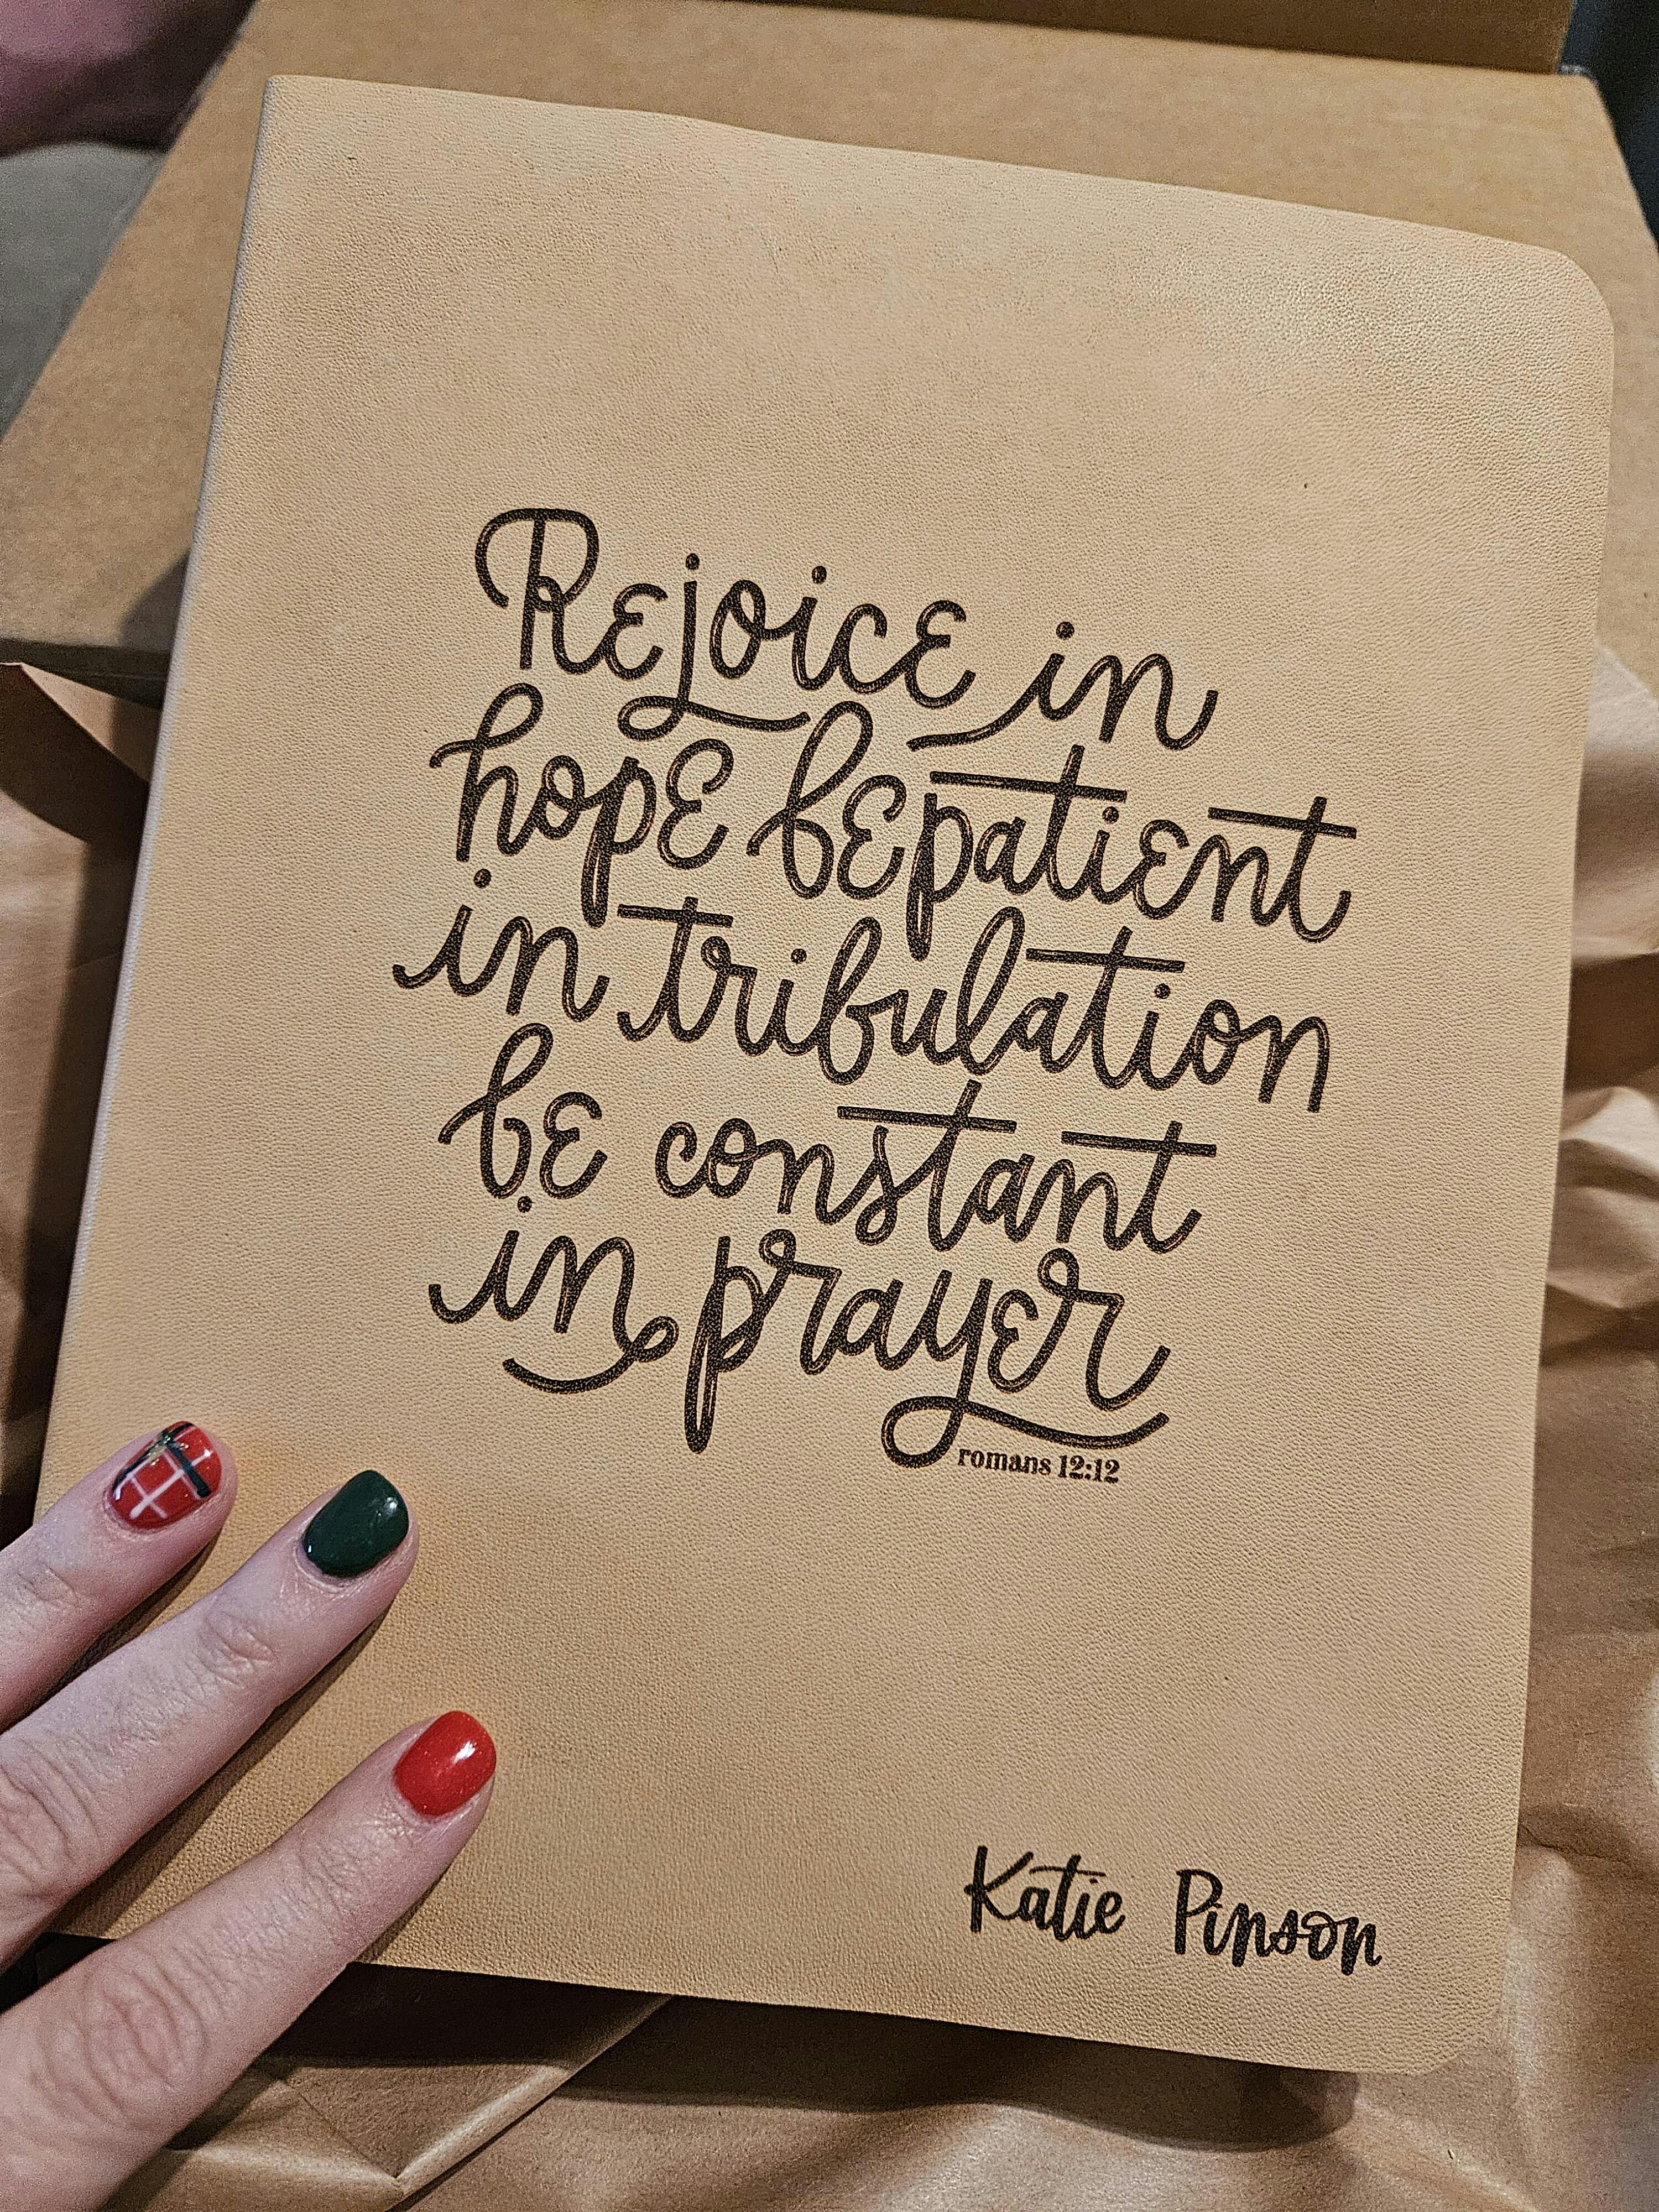 Rejoice in
hope be patient
in tribulation
be constant
in prayer
romans 12:12
Katie Pinson